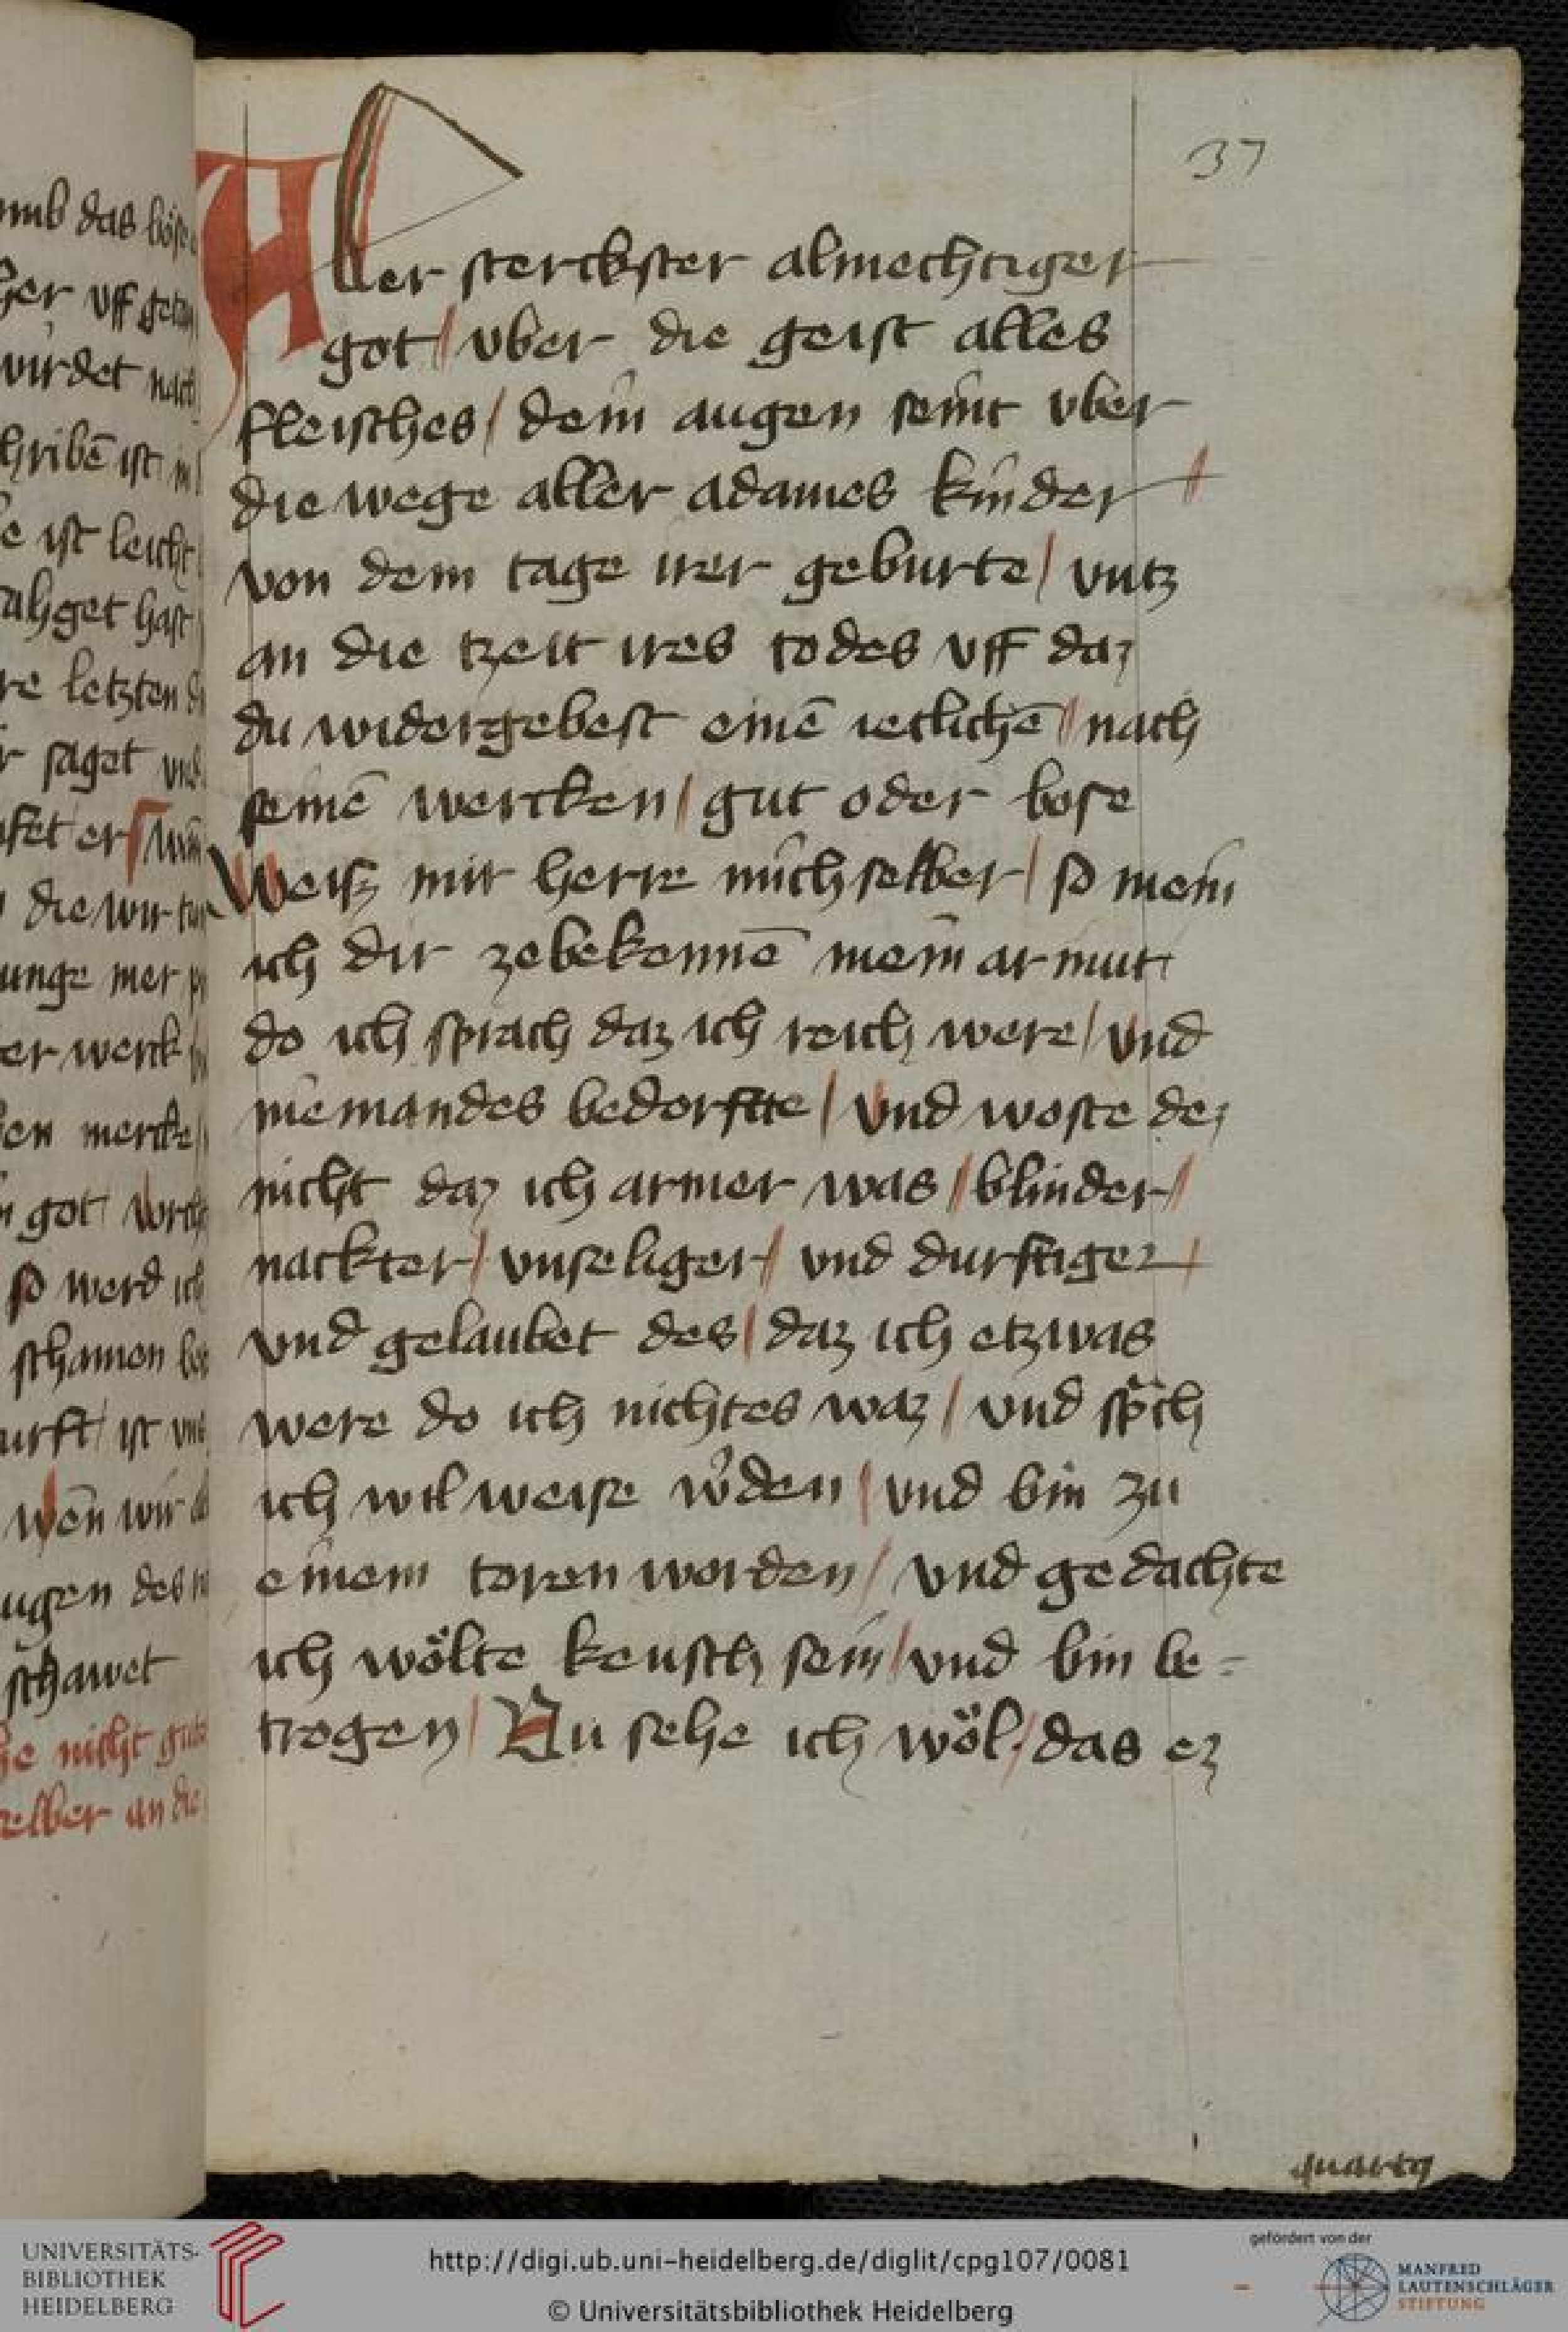 37
Aller sterckster almechtiger
got / vber die geist alles
fleisches / dein augen seint vber
die wege aller adames kinder /
von dem tage irer geburte / vntz
an die tzeit ires todes vff daz
du widergebest einē ieclichē / nach
seinē wercken / gut oder bose
Weisz mir herre mich selber / so mein
ich dir zebekennē mein armut
do ich sprach daz ich reich were / vnd
niemandes bedorftte / vnd woste dez
nicht daz ich armer was / blinder /
nackter / vnseliger / vnd durftiger /
vnd gelaubet des / daz ich etzwas
were do ich nichtes waz / vnd sp̃ch
ich wil weise w͛den / vnd bin zu
einem toren worden / vnd gedachte
ich wölte keusch sein / vnd bin be-
trogen / Nu sehe ich wöl / das ez
quarta
UNIVERSITÄTS-
BIBLIOTHEK
HEIDELBERG
http://digi.ub.uni-heidelberg.de/diglit/cpg107/0081
© Universitätsbibliothek Heidelberg
gefördert von der
MANFRED
LAUTENSCHLÄGER
STIFTUNG